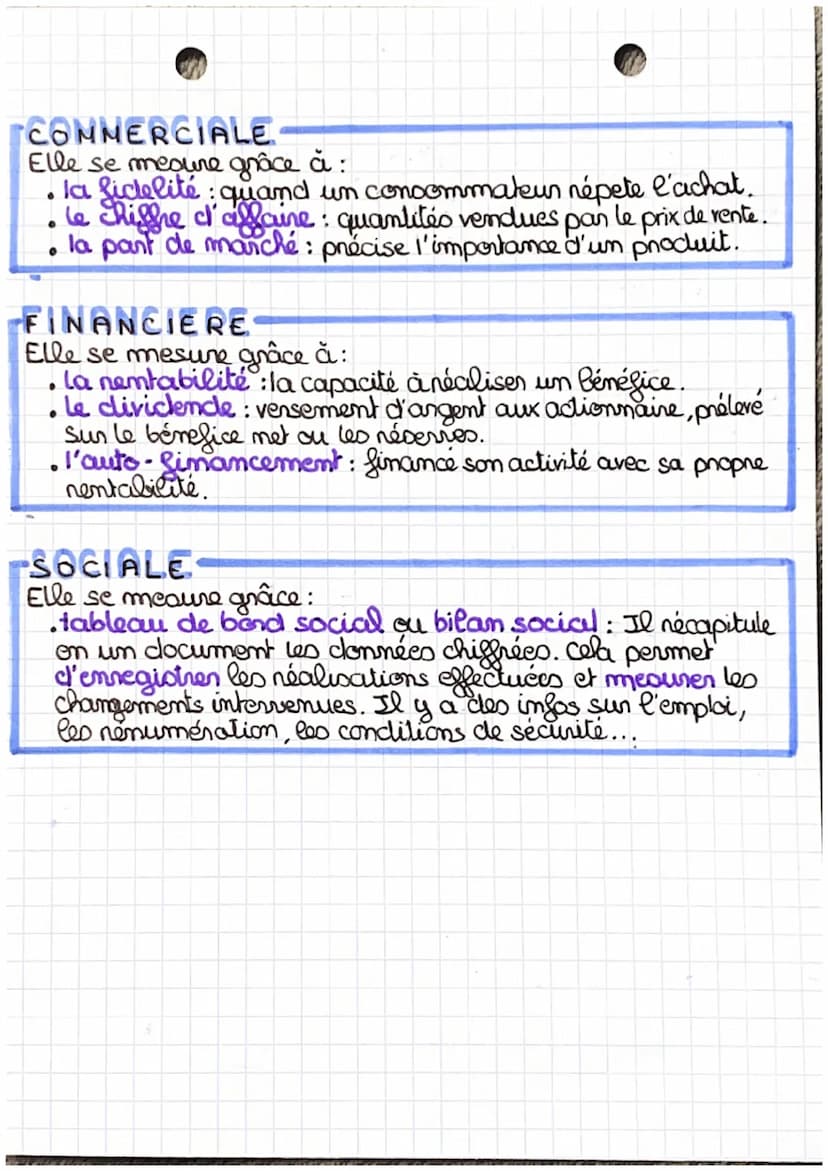 COMMERCIALE
Elle se mesure grâce à :
. la fidelité : quand un consommateur répete l'achat.
. le chiffre d'affaire : quantités vendues par le prix de vente.
. la part de marché : précise l'importance d'un produit.
FINANCIERE
Elle se mesure grâce à :
. la rentabilité : la capacité à réaliser un bénéfice.
. le dividende : versement d'argent aux actionnaire, prélevé
sur le bénefice net ou les réserves.
. l'auto-financement : financé son activité avec sa propre
rentabilité.
SOCIALE
Elle se mesure grâce :
. tableau de bord social ou bilan social : Il récapitule
en un document les données chiffrées. Cela permet
d'enregistrer les réalisations effectuées et mesurer les
changements intervenues. Il y a des infos sur l'emploi,
les rémunération, les conditions de sécurité...